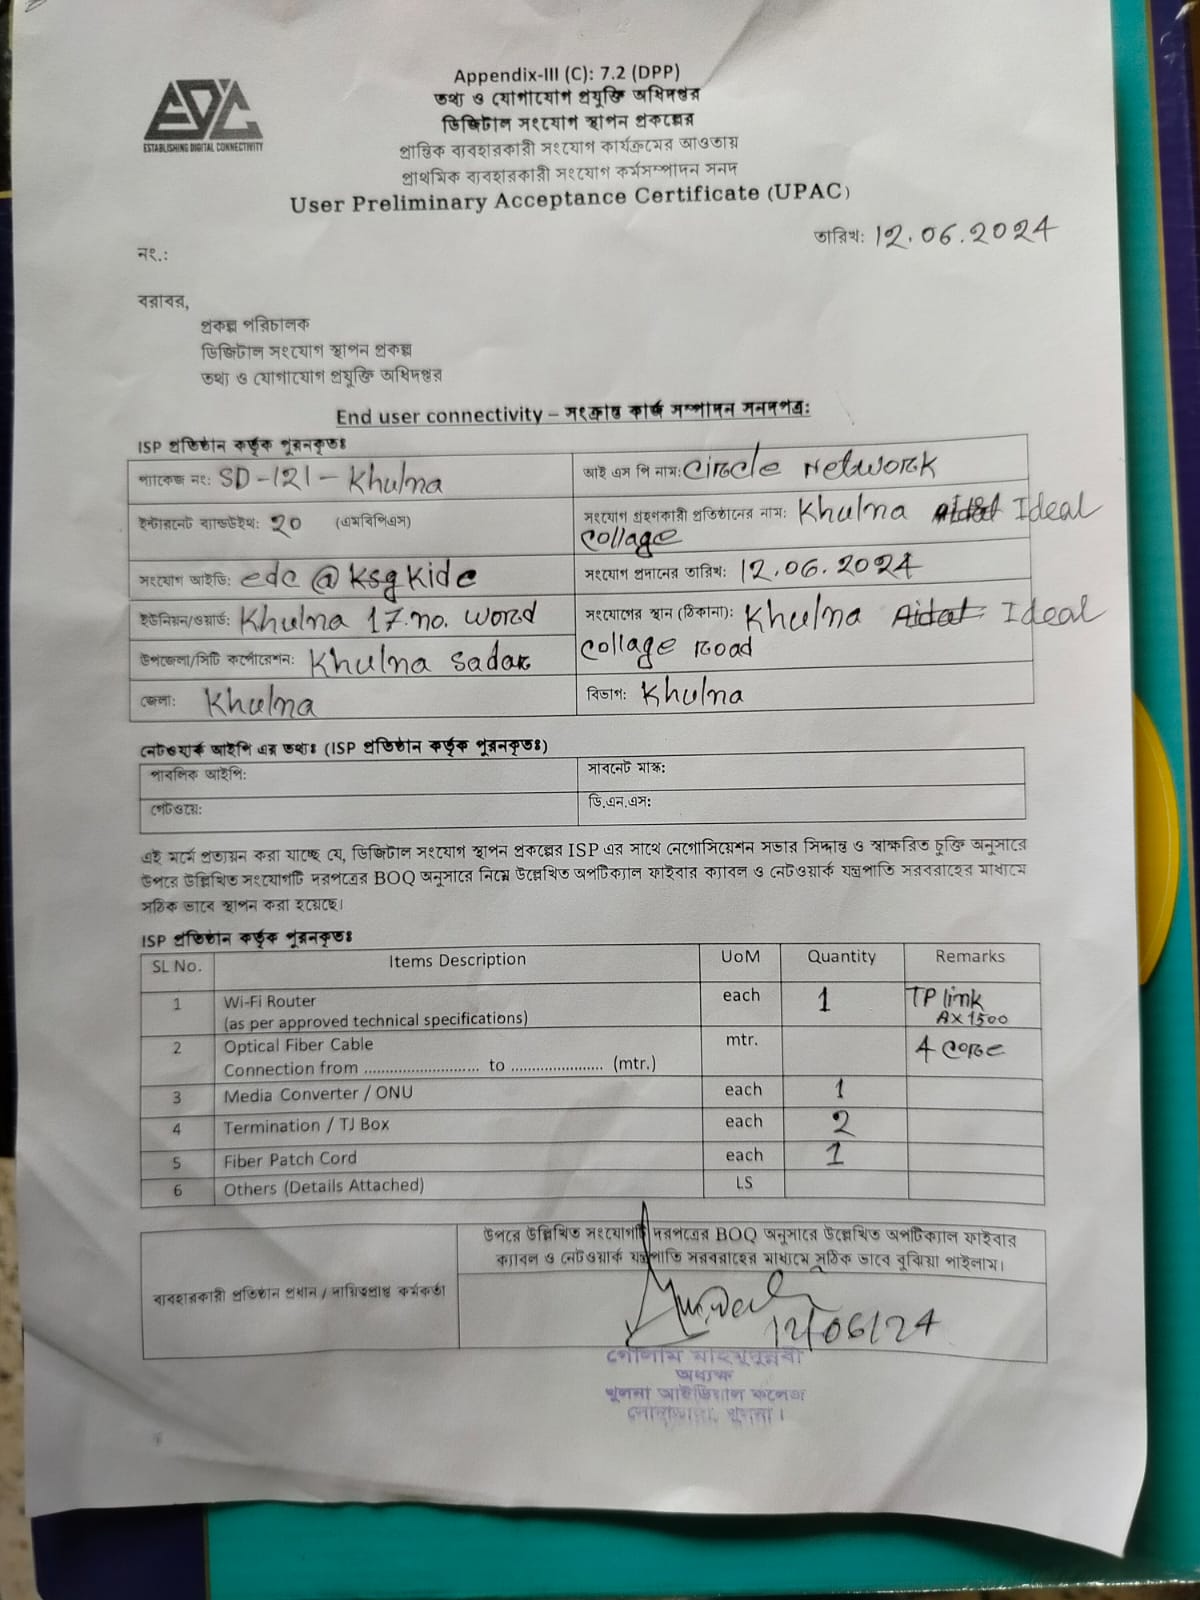 EDC
ESTABLISHING DIGITAL CONNECTIVITY
Appendix-III (C): 7.2 (DPP)
তথ্য ও যোগাযোগ প্রযুক্তি অধিদপ্তর
ডিজিটাল সংযোগ স্থাপন প্রকল্পের
প্রান্তিক ব্যবহারকারী সংযোগ কার্যক্রমের আওতায়
প্রাথমিক ব্যবহারকারী সংযোগ কর্মসম্পাদন সনদ
User Preliminary Acceptance Certificate (UPAC)
তারিখ: 12.06.2024
নং.:
বরাবর,
প্রকল্প পরিচালক
ডিজিটাল সংযোগ স্থাপন প্রকল্প
তথ্য ও যোগাযোগ প্রযুক্তি অধিদপ্তর
End user connectivity – সংক্রান্ত কার্জ সম্পাদন সনদপত্র:
ISP প্রতিষ্ঠান কর্তৃক পূরনকৃতঃ
প্যাকেজ নং: SD-121-Khulna
আই এস পি নাম: Circle Network
ইন্টারনেট ব্যান্ডউইথ: 20 (এমবিপিএস)
সংযোগ গ্রহণকারী প্রতিষ্ঠানের নাম: Khulna Ideal
collage
সংযোগ আইডি: edc@ksgkidc
সংযোগ প্রদানের তারিখ: 12.06.2024
ইউনিয়ন/ওয়ার্ড: Khulna 17.no. word
সংযোগের স্থান (ঠিকানা): Khulna Ideal
collage road
উপজেলা/সিটি কর্পোরেশন: Khulna sadar
জেলা: Khulna
বিভাগ: Khulna
নেটওয়ার্ক আইপি এর তথ্যঃ (ISP প্রতিষ্ঠান কর্তৃক পূরনকৃতঃ)
পাবলিক আইপি:
সাবনেট মাস্ক:
গেটওয়ে:
ডি.এন.এস:
এই মর্মে প্রত্যয়ন করা যাচ্ছে যে, ডিজিটাল সংযোগ স্থাপন প্রকল্পের ISP এর সাথে নেগোসিয়েশন সভার সিদ্ধান্ত ও স্বাক্ষরিত চুক্তি অনুসারে
উপরে উল্লিখিত সংযোগটি দরপত্রের BOQ অনুসারে নিম্নে উল্লেখিত অপটিক্যাল ফাইবার ক্যাবল ও নেটওয়ার্ক যন্ত্রপাতি সরবরাহের মাধ্যমে
সঠিক ভাবে স্থাপন করা হয়েছে।
ISP প্রতিষ্ঠান কর্তৃক পূরনকৃতঃ
SL No. Items Description UoM Quantity Remarks
1 Wi-Fi Router each 1 TP link
(as per approved technical specifications) AX1500
2 Optical Fiber Cable mtr. 4 core
Connection from ........................... to ...................... (mtr.)
3 Media Converter / ONU each 1
4 Termination / TJ Box each 2
5 Fiber Patch Cord each 1
6 Others (Details Attached) LS
উপরে উল্লিখিত সংযোগটি দরপত্রের BOQ অনুসারে উল্লেখিত অপটিক্যাল ফাইবার
ক্যাবল ও নেটওয়ার্ক যন্ত্রপাতি সরবরাহের মাধ্যমে সঠিক ভাবে বুঝিয়া পাইলাম।
ব্যবহারকারী প্রতিষ্ঠান প্রধান / দায়িত্বপ্রাপ্ত কর্মকর্তা
12/06/24
অধ্যক্ষ
খুলনা আইডিয়াল কলেজ
খুলনা।